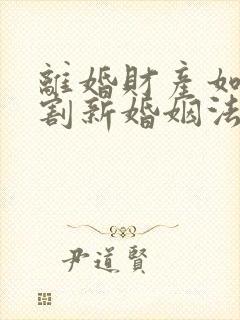 離婚財產如
割新婚姻法
尹道賢